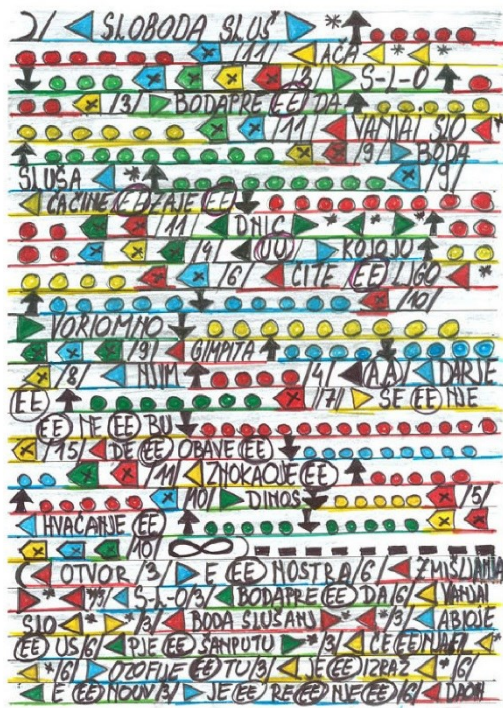 2/ SLOBODA SLUŠ *
/11/ AČA * *
/3/ S-L-O
/3/ BODAPRE EE DA
/11/ VANJAI SLO *
/9/ BODA
SLUŠA * /9/
ČAČINE EE ZAJE EE
/11/ DNIC * *
/4/ UU KOJOJU
/6/ ČITE EE LJGO *
/10/
VORIOMNO
/9/ GIMPITA
/8/ NJIM /4/ AA DARJE
EE /7/ SE EE NJE
EE NE EE BU
/15/ DE EE OBAVE EE
/11/ ZNOKAQUE EE
/10/ DINOS /5/
HVAĆANJE EE
/10/ ∞
OTVOR /3/ E EE NOSTRA /6/ ZMIŠLJANJA
* */3/ S-L-O /3/ BODAPRE EE DA /6/ VANJAI
SLO * */3/ BODA SLUŠANJ * */3/ ABIOJE
EE US /6/ PJE EE SANPUTU */3/ ČE EE NJAFI *
*/6/ OZOFIJE EE TU /3/ JE EE IZRAZ */6/
E EE NOUV /3/ JE EE RE EE NJE EE /6/